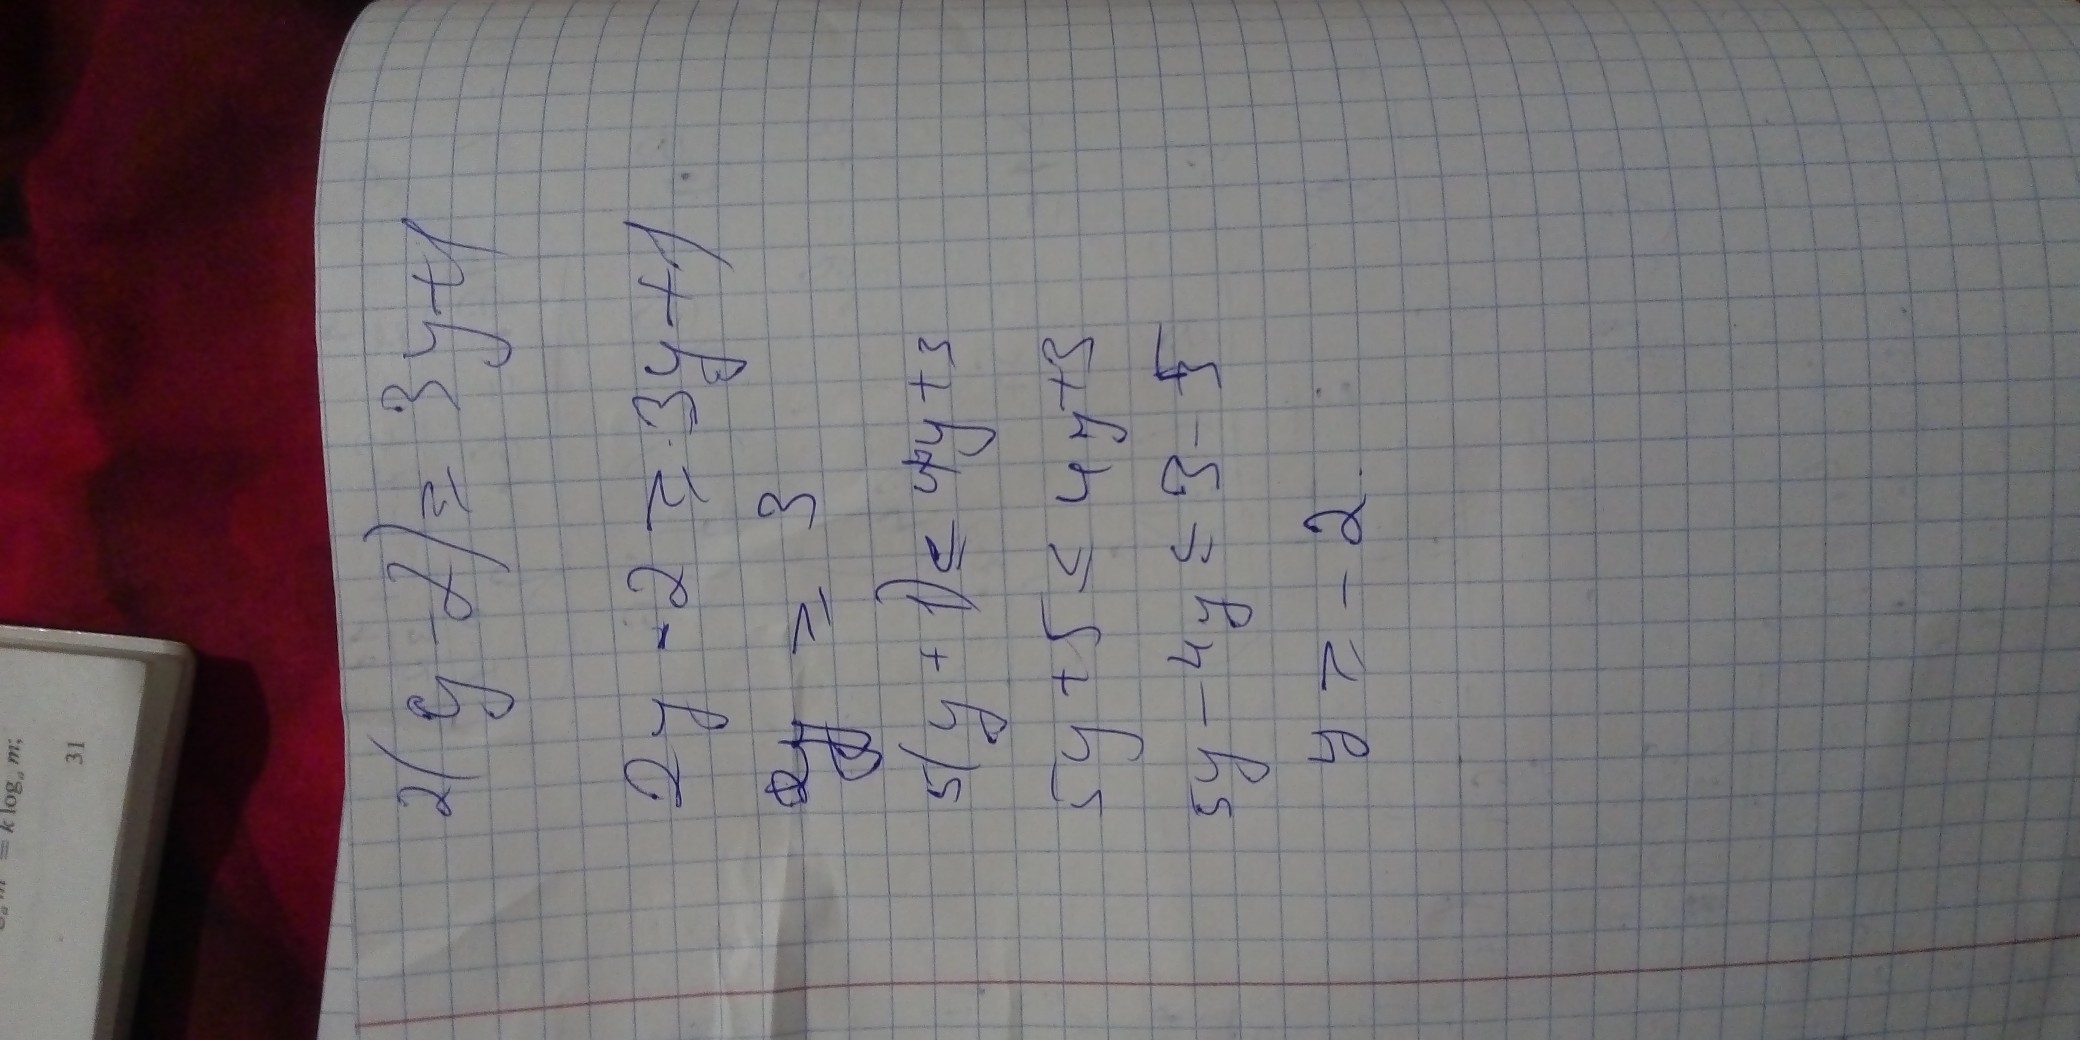 2(y-2) ≥ 3y+1
2y - 2 ≥ 3y+1
y ≥ 3
5(y + 1) ≤ 4y+3
5y+5 ≤ 4y+3
5y-4y ≤ 3-5
y ≥ -2
= k logₐ m;
31